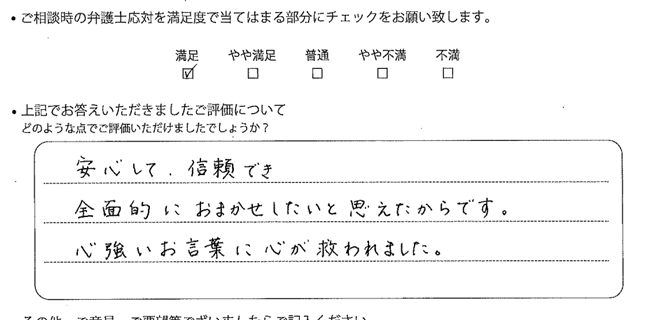 ・ご相談時の弁護士応対を満足度で当てはまる部分にチェックをお願い致します。
満足 やや満足 普通 やや不満 不満
☑ ☐ ☐ ☐ ☐
・上記でお答えいただきましたご評価について
どのような点でご評価いただけましたでしょうか?
安心して、信頼でき
全面的におまかせしたいと思えたからです。
心強いお言葉に心が救われました。
その他、ご意見、ご要望等でざいましたらご記入ください